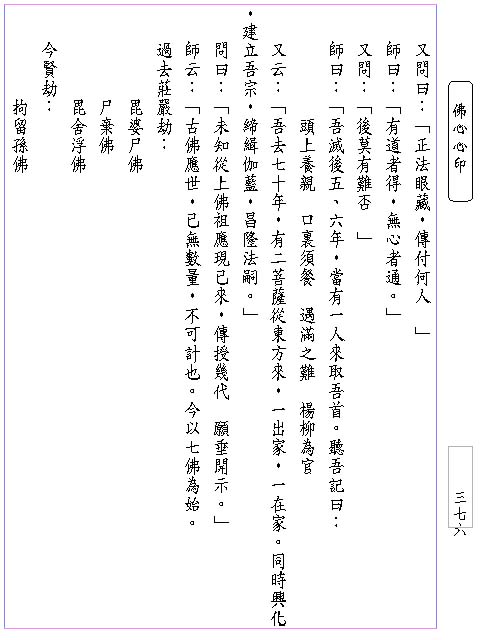 佛心心印
三七六
又問曰：「正法眼藏，傳付何人　」
師曰：「有道者得，無心者通。」
又問：「後莫有難否　」
師曰：「吾滅後五、六年，當有一人來取吾首。聽吾記曰：
頭上養親　口裏須餐　遇滿之難　楊柳為官
又云：「吾去七十年，有二菩薩從東方來，一出家，一在家。同時興化
，建立吾宗，締緝伽藍，昌隆法嗣。」
問曰：「未知從上佛祖應現已來，傳授幾代　願垂開示。」
師云：「古佛應世，已無數量，不可計也。今以七佛為始。
過去莊嚴劫：
毘婆尸佛
尸棄佛
毘舍浮佛
今賢劫：
拘留孫佛